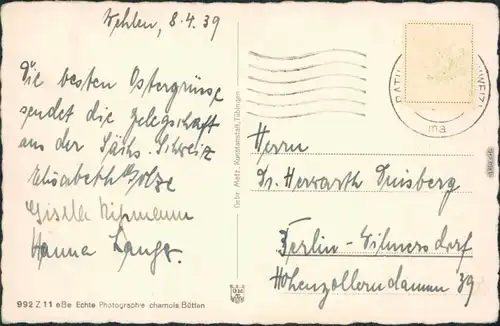 Wehlen, 8.4.39
Die besten Ostergrüsse
sendet die Belegschaft
aus der Sächs. Schweiz
Elisabeth
Gisela
Hanna Lange.
Gebr. Metz, Kunstanstalt, Tübingen
ma
Herrn
Dr. Herwarth Duisberg
Berlin-Wilmersdorf
Hohenzollerndamm 39
992 Z 11 eBe Echte Photographie chamois Bütten